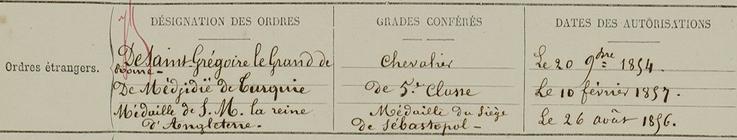 DÉSIGNATION DES ORDRES GRADES CONFÉRÉS DATES DES AUTORISATIONS
Ordres étrangers.
De Saint Grégoire le Grand de Rome - Chevalier Le 20 9bre 1854.
De Médjidié de Turquie de 5e Classe Le 10 février 1857.
Médaille de S. M. la reine Médaille du Siège Le 26 août 1856.
d'Angleterre - de Sébastopol -